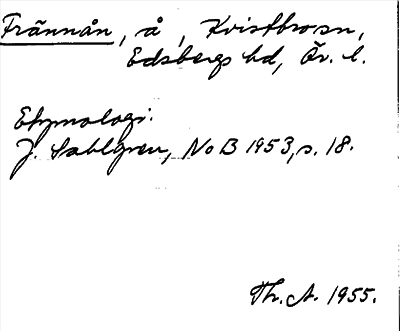 Frännån, å, Kvistbrosn,
Edsbergs hd, Ör. l.
Etymologi:
J. Sahlgren, NoB 1953, s. 18.
Th. A. 1955.